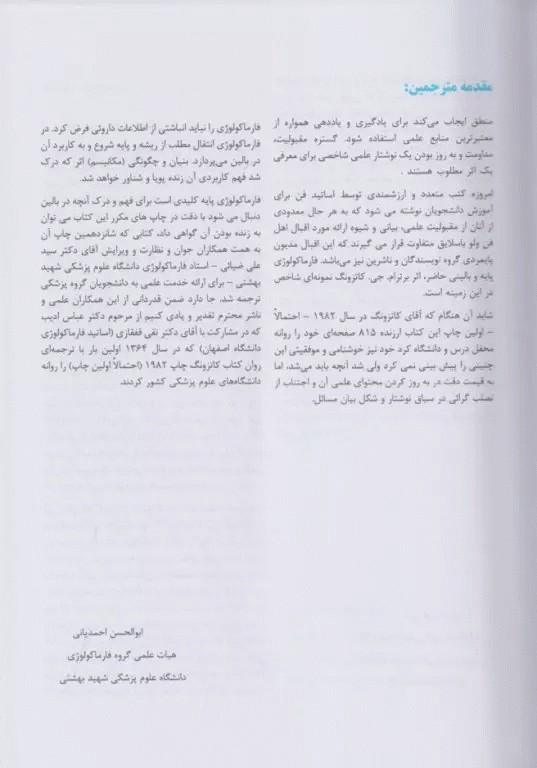 مقدمه مترجمین:
منطق ایجاب می‌کند برای یادگیری و یاددهی همواره از
معتبرترین منابع علمی استفاده شود. گستره مقبولیت،
مداومت و به روز بودن یک نوشتار علمی شاخصی برای معرفی
یک اثر مطلوب هستند .
امروزه کتب متعدد و ارزشمندی توسط اساتید فن برای
آموزش دانشجویان نوشته می شود که به هر حال معدودی
از آنان از مقبولیت علمی، بیانی و شیوه ارائه مورد اقبال اهل
فن ولو باسلایق متفاوت قرار می گیرند که این اقبال مدیون
پایمردی گروه نویسندگان و ناشرین نیز می‌باشد. فارماکولوژی
پایه و بالینی حاضر، اثر برترام. جی. کاتزونگ نمونه‌ای شاخص
در این زمینه است.
شاید آن هنگام که آقای کاتزونگ در سال ۱۹۸۲ – احتمالاً
– اولین چاپ این کتاب ارزنده ۸۱۵ صفحه‌ای خود را روانه
محفل درس و دانشگاه کرد خود نیز خوشنامی و موفقیتی این
چنینی را پیش بینی نمی کرد ولی شد آنچه باید می‌شد، اما
به قیمت دقت در به روز کردن محتوای علمی آن و اجتناب از
تصلب گرائی در سیاق نوشتار و شکل بیان مسائل.
فارماکولوژی را نباید انباشتی از اطلاعات داروئی فرض کرد. در
فارماکولوژی انتقال مطلب از ریشه و پایه شروع و به کاربرد آن
در بالین می‌پردازد. بنیان و چگونگی (مکانیسم) اثر که درک
شد فهم کاربردی آن زنده پویا و شناور خواهد شد.
فارماکولوژی پایه کلیدی است برای فهم و درک آنچه در بالین
دنبال می شود با دقت در چاپ های مکرر این کتاب می توان
به زنده بودن آن گواهی داد، کتابی که شانزدهمین چاپ آن
به همت همکاران جوان و نظارت و ویرایش آقای دکتر سید
علی ضیائی – استاد فارماکولوژی دانشگاه علوم پزشکی شهید
بهشتی – برای ارائه خدمت علمی به دانشجویان گروه پزشکی
ترجمه شد. جا دارد ضمن قدردانی از این همکاران علمی و
ناشر محترم تقدیر و یادی کنیم از مرحوم دکتر عباس ادیب
که در مشارکت با آقای دکتر تقی غفاری (اساتید فارماکولوژی
دانشگاه اصفهان) که در سال ۱۳۶۴ اولین بار با ترجمه‌ای
روان کتاب کاتزونگ چاپ ۱۹۸۲ (احتمالاً اولین چاپ) را روانه
دانشگاه‌های علوم پزشکی کشور کردند.
ابوالحسن احمدیانی
هیات علمی گروه فارماکولوژی
دانشگاه علوم پزشکی شهید بهشتی